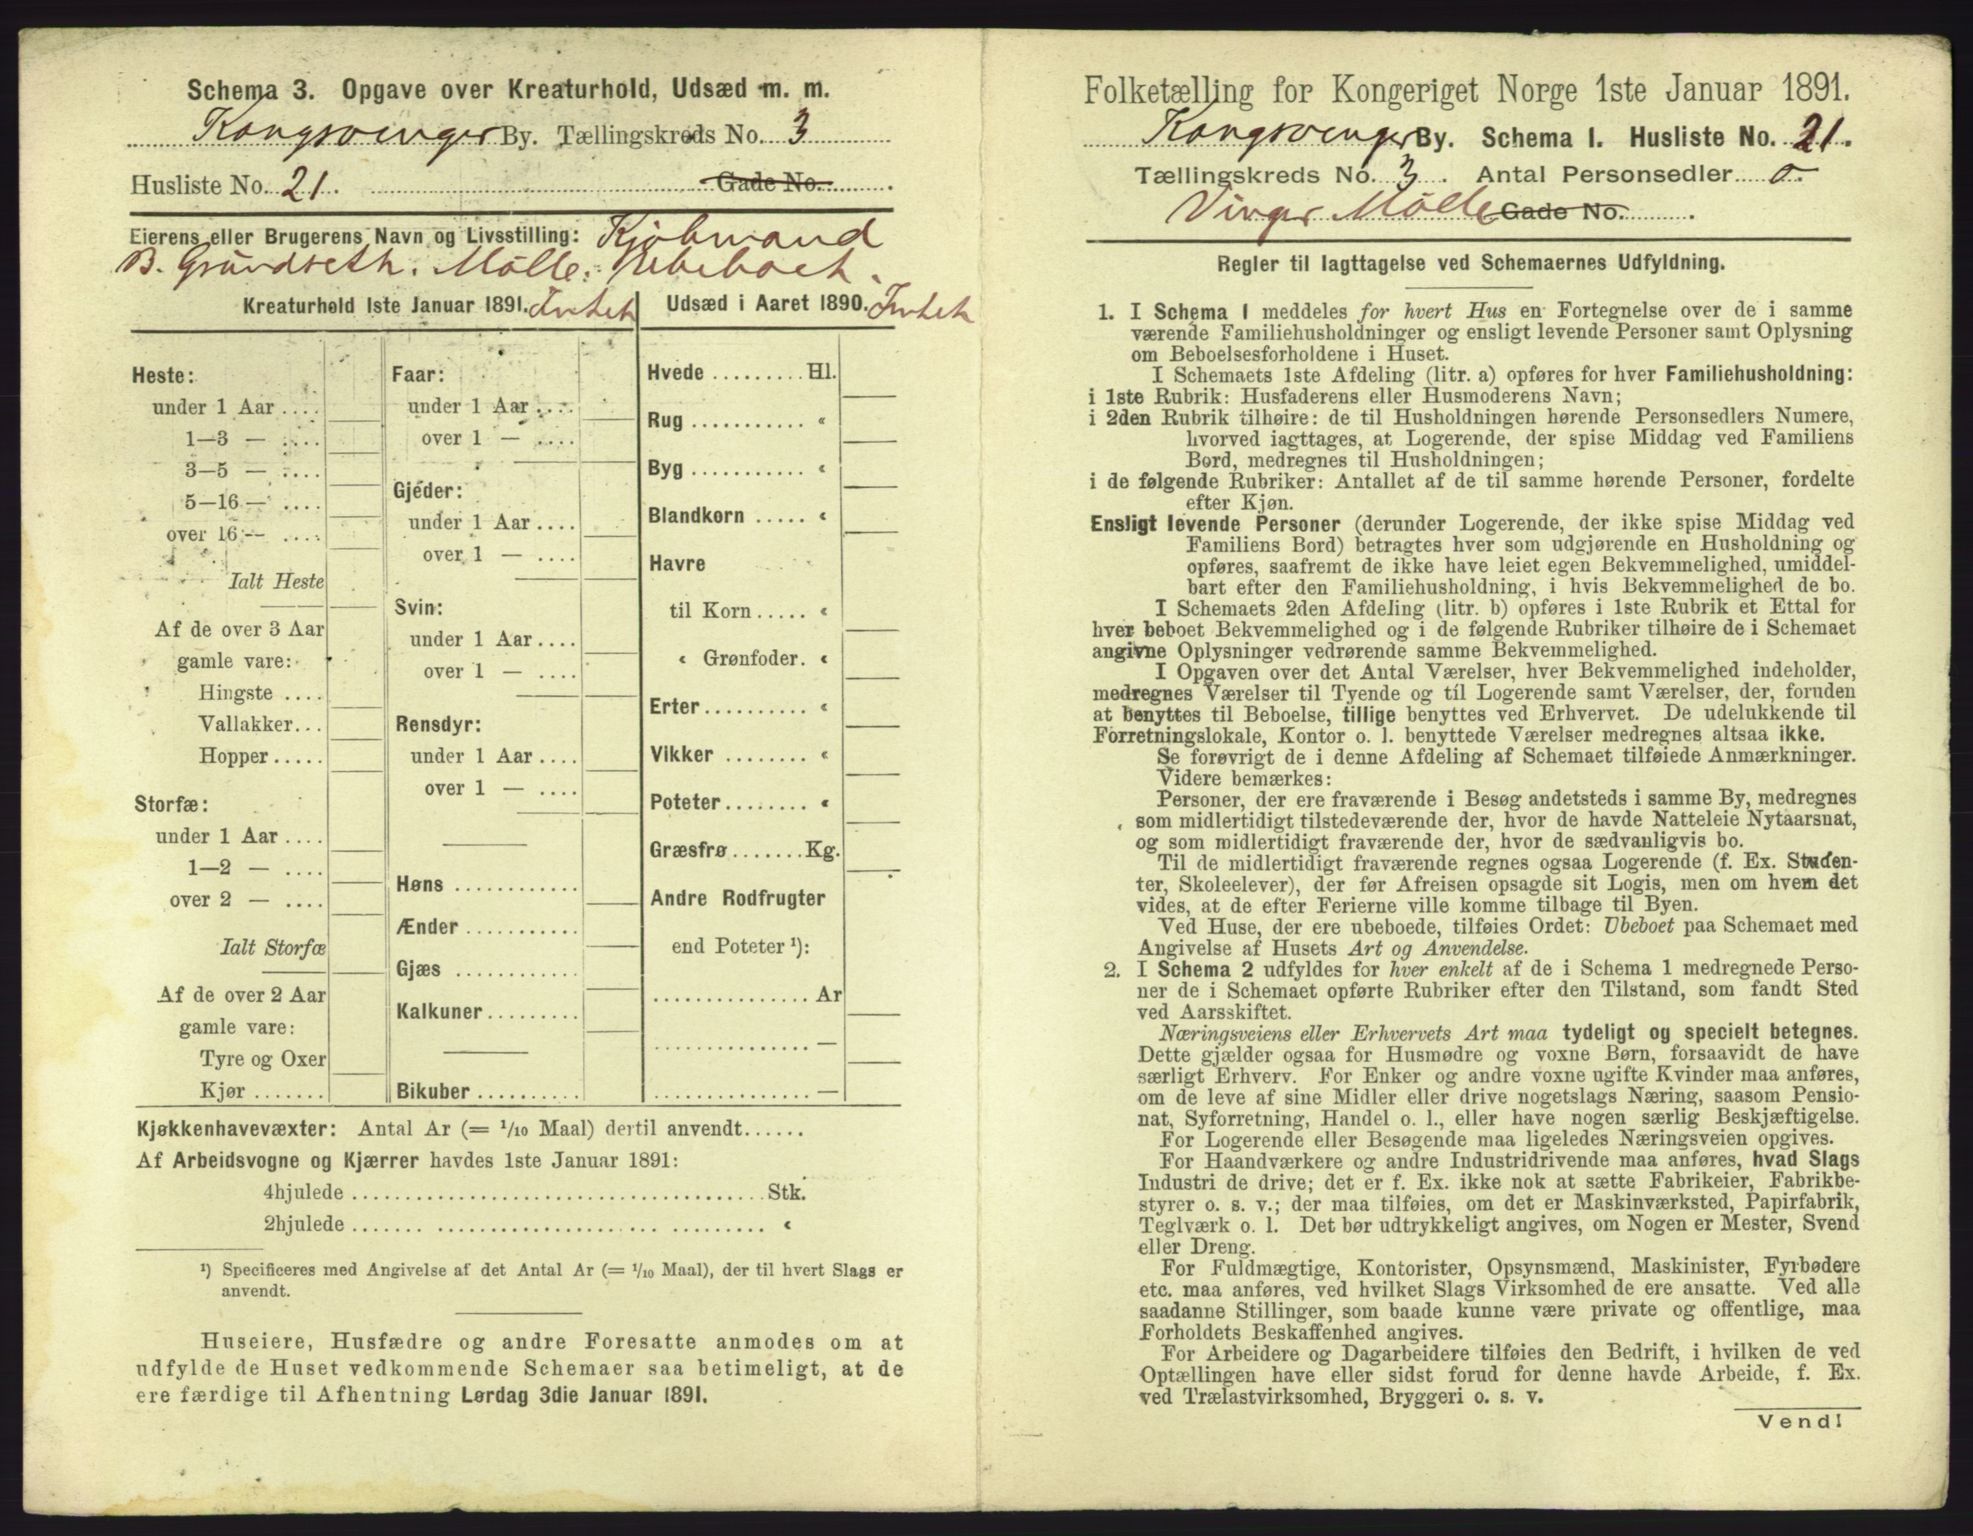 Schema 3. Opgave over Kreaturhold, Udsæd m. m.
Kongsvinger By. Tællingskreds No. 3
Husliste No. 21. Gade No.
Eierens eller Brugerens Navn og Livsstilling: Kjøbmand
B. Grundseth. Mølle. Ubeboet.
Kreaturhold 1ste Januar 1891. Intet
Heste:
under 1 Aar ....
1—3 — ....
3—5 — ....
5—16 — ....
over 16 — ....
Ialt Heste
Af de over 3 Aar
gamle vare:
Hingste ....
Vallakker...
Hopper.....
Storfæ:
under 1 Aar ....
1—2 — ....
over 2 — ....
Ialt Storfæ
Af de over 2 Aar
gamle vare:
Tyre og Oxer
Kjør .......
Faar:
under 1 Aar ....
over 1 — ....
Gjeder:
under 1 Aar ....
over 1 — ....
Svin:
under 1 Aar ....
over 1 — ....
Rensdyr:
under 1 Aar ....
over 1 — ....
Høns ...........
Ænder ...........
Gjæs ...........
Kalkuner.........
Bikuber ..........
Udsæd i Aaret 1890. Intet
Hvede ......... Hl.
Rug ........... «
Byg ........... «
Blandkorn ..... «
Havre
til Korn ..... «
« Grønfoder. «
Erter.......... «
Vikker ........ «
Poteter........ «
Græsfrø.......Kg.
Andre Rodfrugter
end Poteter ¹):
............... Ar
............... —
............... —
Kjøkkenhavevæxter: Antal Ar (= 1/10 Maal) dertil anvendt......
Af Arbeidsvogne og Kjærrer havdes 1ste Januar 1891:
4hjulede ........................................ Stk.
2hjulede ........................................ «
¹) Specificeres med Angivelse af det Antal Ar (= 1/10 Maal), der til hvert Slags er
anvendt.
Huseiere, Husfædre og andre Foresatte anmodes om at
udfylde de Huset vedkommende Schemaer saa betimeligt, at de
ere færdige til Afhentning Lørdag 3die Januar 1891.
Folketælling for Kongeriget Norge 1ste Januar 1891.
Kongsvinger By. Schema 1. Husliste No. 21.
Tællingskreds No. 3. Antal Personsedler 0.
Vinger Mølle Gade No.
Regler til Iagttagelse ved Schemaernes Udfyldning.
1. I Schema 1 meddeles for hvert Hus en Fortegnelse over de i samme
værende Familiehusholdninger og ensligt levende Personer samt Oplysning
om Beboelsesforholdene i Huset.
I Schemaets 1ste Afdeling (litr. a) opføres for hver Familiehusholdning:
i 1ste Rubrik: Husfaderens eller Husmoderens Navn;
i 2den Rubrik tilhøire: de til Husholdningen hørende Personsedlers Numere,
hvorved iagttages, at Logerende, der spise Middag ved Familiens
Bord, medregnes til Husholdningen;
i de følgende Rubriker: Antallet af de til samme hørende Personer, fordelte
efter Kjøn.
Ensligt levende Personer (derunder Logerende, der ikke spise Middag ved
Familiens Bord) betragtes hver som udgjørende en Husholdning og
opføres, saafremt de ikke have leiet egen Bekvemmelighed, umiddel-
bart efter den Familiehusholdning, i hvis Bekvemmelighed de bo.
I Schemaets 2den Afdeling (litr. b) opføres i 1ste Rubrik et Ettal for
hver beboet Bekvemmelighed og i de følgende Rubriker tilhøire de i Schemaet
angivne Oplysninger vedrørende samme Bekvemmelighed.
I Opgaven over det Antal Værelser, hver Bekvemmelighed indeholder,
medregnes Værelser til Tyende og til Logerende samt Værelser, der, foruden
at benyttes til Beboelse, tillige benyttes ved Erhvervet. De udelukkende til
Forretningslokale, Kontor o. l. benyttede Værelser medregnes altsaa ikke.
Se forøvrigt de i denne Afdeling af Schemaet tilføiede Anmærkninger.
Videre bemærkes:
Personer, der ere fraværende i Besøg andetsteds i samme By, medregnes
som midlertidigt tilstedeværende der, hvor de havde Natteleie Nytaarsnat,
og som midlertidigt fraværende der, hvor de sædvanligvis bo.
Til de midlertidigt fraværende regnes ogsaa Logerende (f. Ex. Studen-
ter, Skoleelever), der før Afreisen opsagde sit Logis, men om hvem det
vides, at de efter Ferierne ville komme tilbage til Byen.
Ved Huse, der ere ubeboede, tilføies Ordet: Ubeboet paa Schemaet med
Angivelse af Husets Art og Anvendelse.
2. I Schema 2 udfyldes for hver enkelt af de i Schema 1 medregnede Perso-
ner de i Schemaet opførte Rubriker efter den Tilstand, som fandt Sted
ved Aarsskiftet.
Næringsveiens eller Erhvervets Art maa tydeligt og specielt betegnes.
Dette gjælder ogsaa for Husmødre og voxne Børn, forsaavidt de have
særligt Erhverv. For Enker og andre voxne ugifte Kvinder maa anføres,
om de leve af sine Midler eller drive nogetslags Næring, saasom Pensio-
nat, Syforretning, Handel o. l., eller have nogen særlig Beskjæftigelse.
For Logerende eller Besøgende maa ligeledes Næringsveien opgives.
For Haandværkere og andre Industridrivende maa anføres, hvad Slags
Industri de drive; det er f. Ex. ikke nok at sætte Fabrikeier, Fabrikbe-
styrer o. s. v.; der maa tilføies, om det er Maskinværksted, Papirfabrik,
Teglværk o. l. Det bør udtrykkeligt angives, om Nogen er Mester, Svend
eller Dreng.
For Fuldmægtige, Kontorister, Opsynsmænd, Maskinister, Fyrbødere
etc. maa anføres, ved hvilket Slags Virksomhed de ere ansatte. Ved alle
saadanne Stillinger, som baade kunne være private og offentlige, maa
Forholdets Beskaffenhed angives.
For Arbeidere og Dagarbeidere tilføies den Bedrift, i hvilken de ved
Optællingen have eller sidst forud for denne havde Arbeide, f. Ex.
ved Trælastvirksomhed, Bryggeri o. s. v.
Vend!